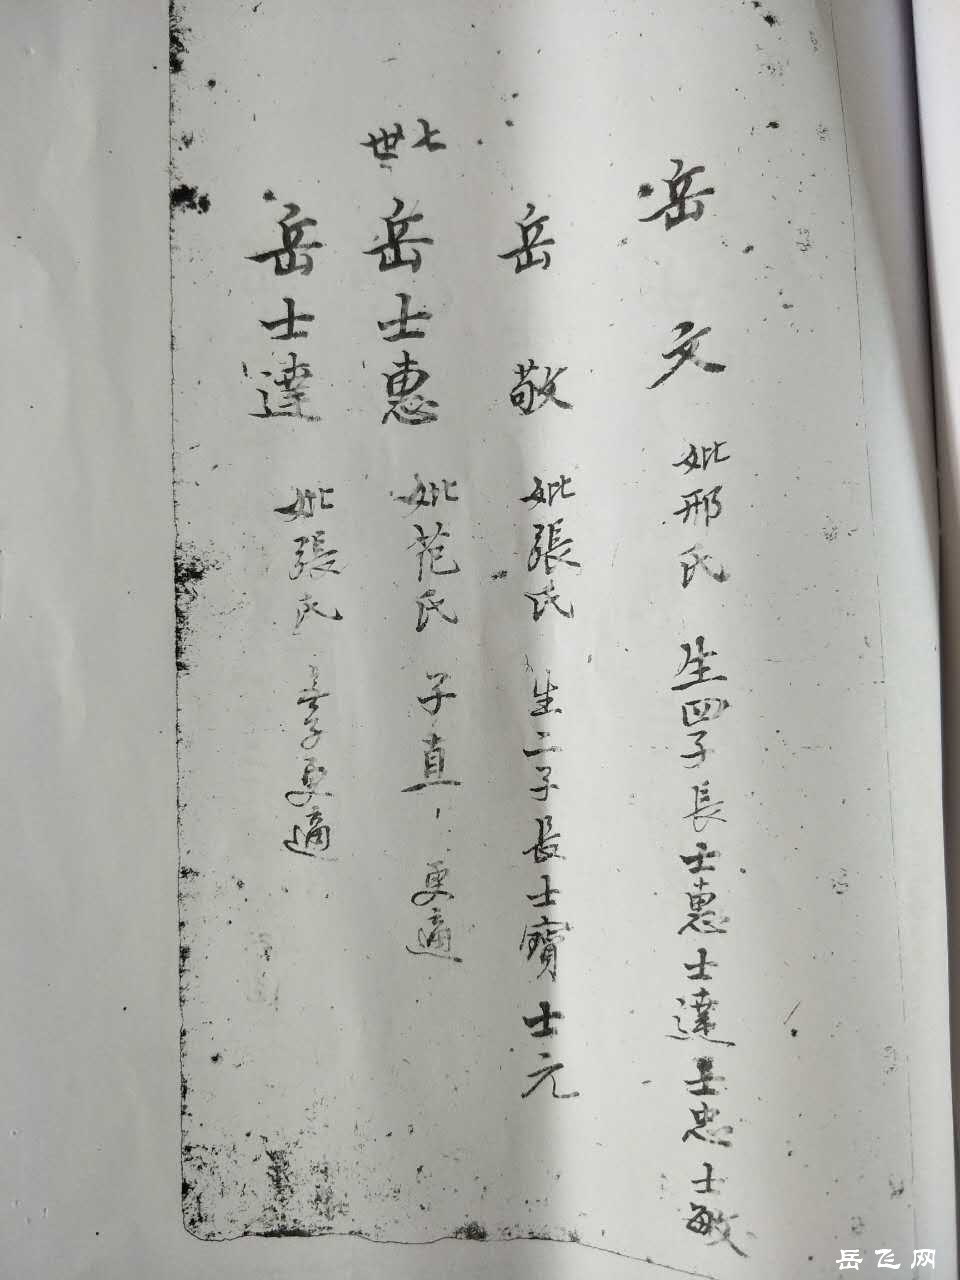 岳文 妣邢氏 生四子長士惠士達士忠士敏
岳敬 妣張氏 生二子長士寶士元
七世
岳士惠 妣范氏 子直 更適
岳士達 妣張氏 子更適
岳飞网